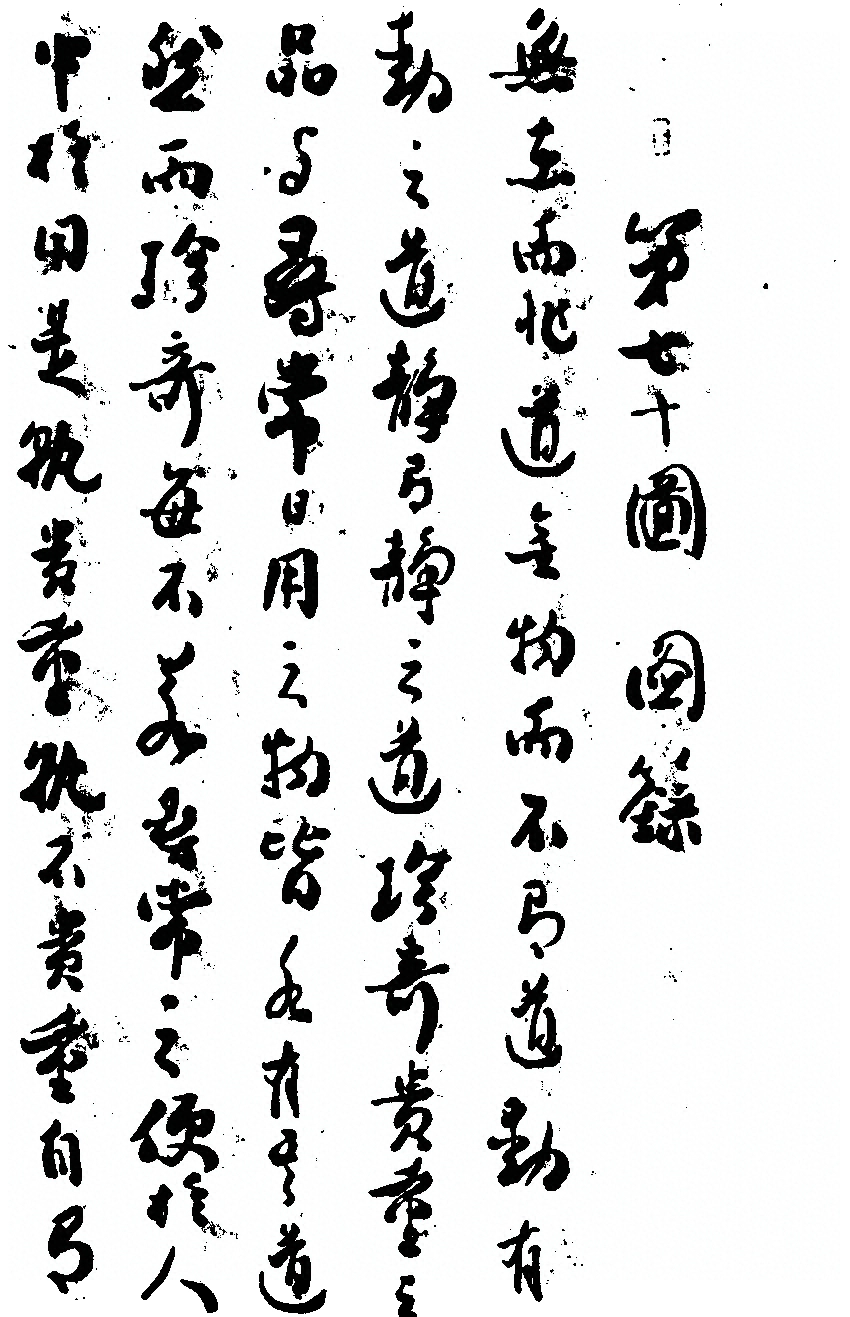 第七十圖 圖籙
無在而非道無物而不有道動有
動之道靜有靜之道珍奇貴重之
品与尋常日用之物皆各有其道
然而珍奇每不若尋常之便於人
中於用是孰貴重孰不貴重自有